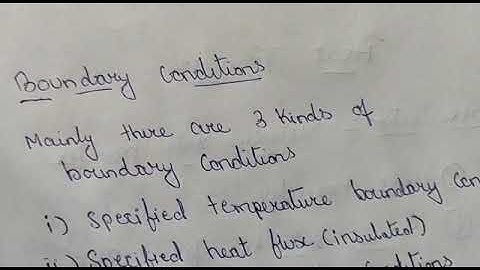 Boundary Conditions
Mainly there are 3 kinds of
boundary Conditions
i) Specified temperature boundary Con
ii) Specified heat flux (insulated)
Conditions